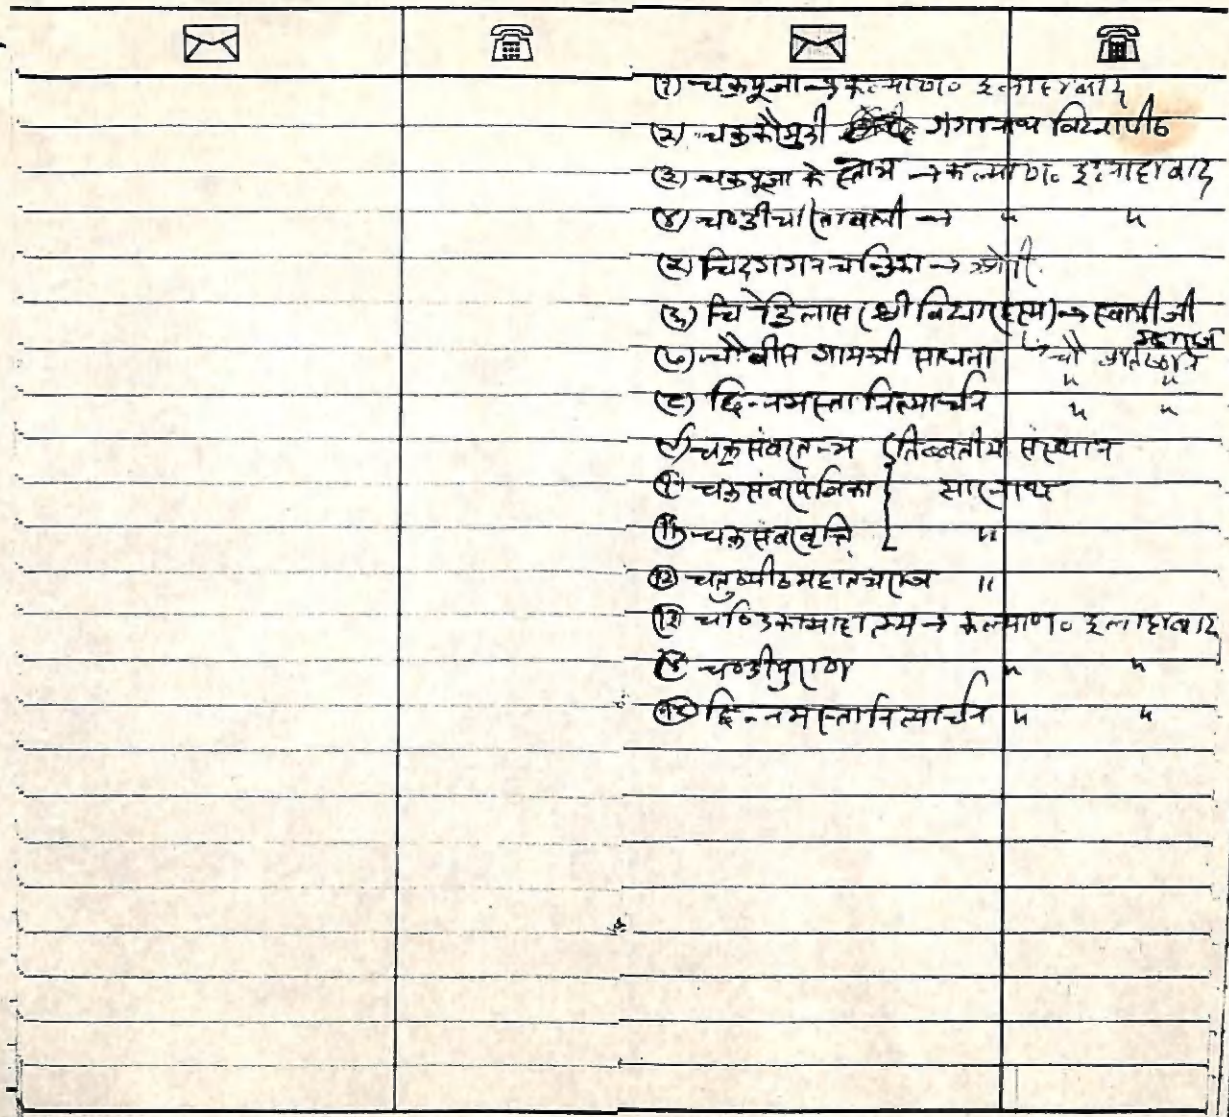 (१) चक्रपूजा → कल्याण० इलाहाबाद
(२) चक्रकौमुदी गंगानाथ विद्यापीठ
(३) चक्रपूजा के स्तोत्र → कल्याण० इलाहाबाद
(४) चण्डीचरितावली → " "
(५) चिदगगनचन्द्रिका →
(६) चिद्विलास (श्री विद्यारहस्य) → स्वामीजी महाराज
(७) चौबीस गायत्री साधना ↳ चौ
" "
(८) छिन्नमस्ता नित्यार्चन " "
(९) चक्रसंवरतन्त्र { तिब्बतीय संस्थान
(१०) चक्रसंवरपंजिका { सारनाथ
(११) चक्रसंवरवृत्ति "
(१२) चतुष्पीठमहातन्त्रराज "
(१३) चण्डिकामाहात्म्य → कल्याण० इलाहाबाद
(१४) चण्डीपुराण " "
(१५) छिन्नमस्ता नित्यार्चन " "